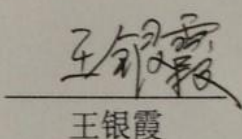 王银霞
王银霞